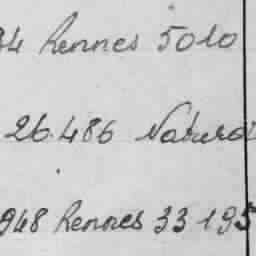 34 Rennes 5010
26.486 Natura
948 Rennes 33195